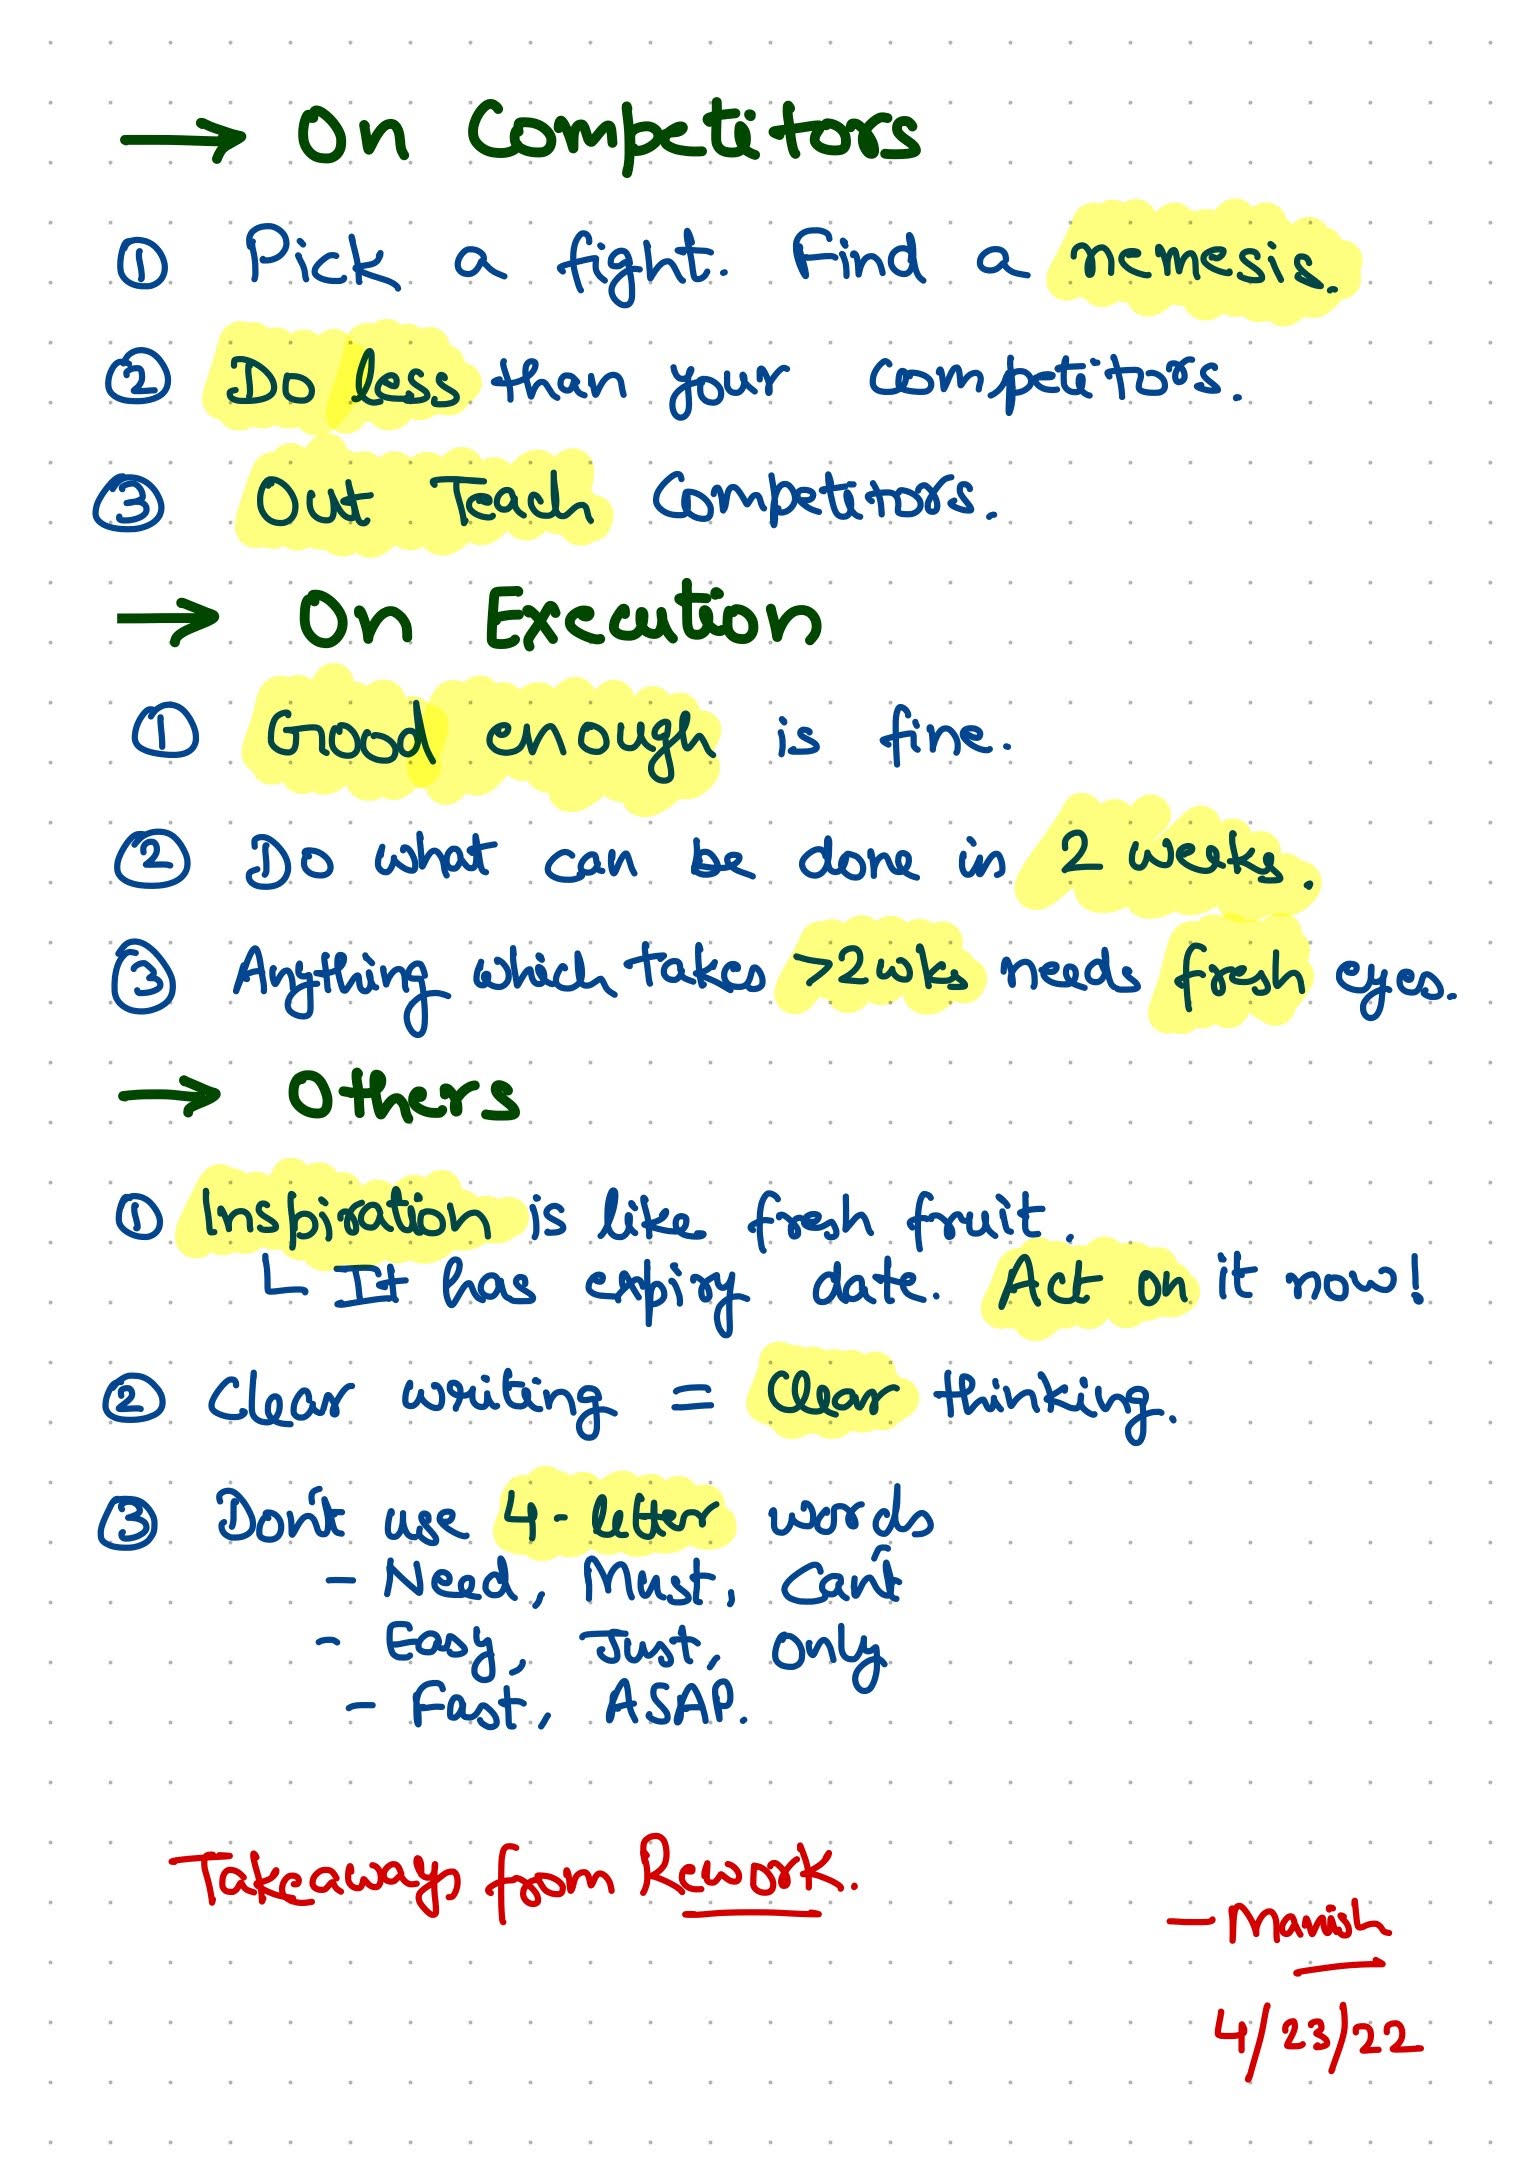 → On Competitors
① Pick a fight. Find a nemesis.
② Do less than your competitors.
③ Out Teach Competitors.
→ On Execution
① Good enough is fine.
② Do what can be done in 2 weeks.
③ Anything which takes >2wks needs fresh eyes.
→ Others
① Inspiration is like fresh fruit.
└ It has expiry date. Act on it now!
② Clear writing = Clear thinking.
③ Don't use 4-letter words
- Need, Must, Can't
- Easy, Just, Only
- Fast, ASAP.
Takeaways from Rework.
- Manish
4/23/22